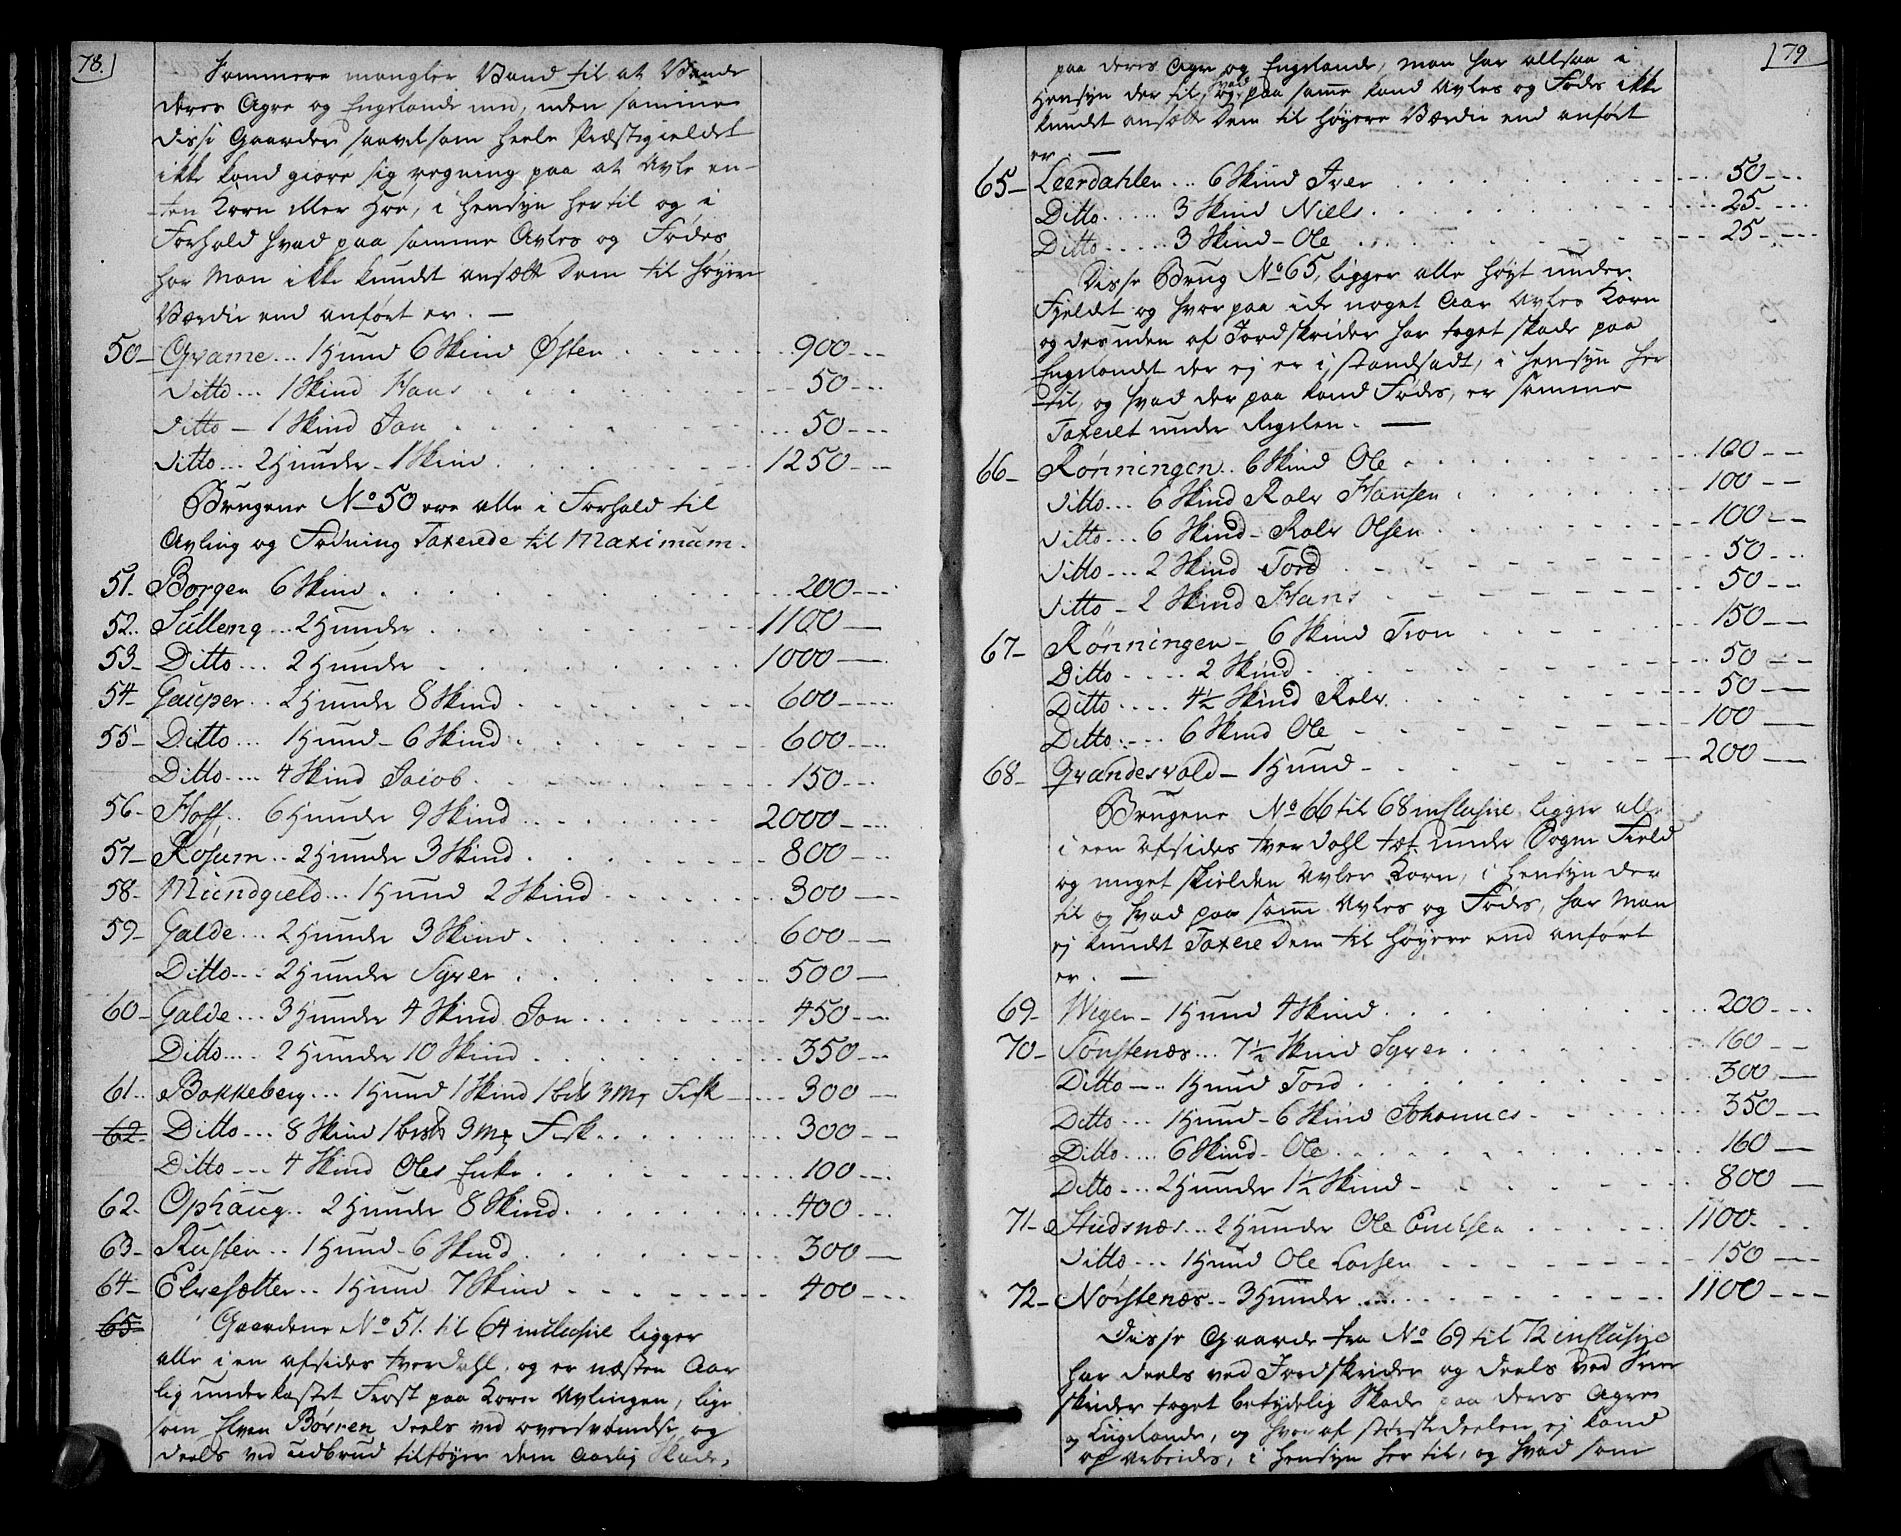 78.
Sommere mangler Vand til at Vande
deres Agre og Engelande med, uden samme
disse Gaarder saavelsom heele Præstegieldet
ikke kand giøre sig regning paa at Avle en-
ten Korn eller Høe, i Hensyn hertil og i
Forhold hvad paa samme Avles og Fødes
har man ikke kundt ansætte dem til høyere
Værdie end anført er. —
50— Qvame... 1 Hund 6 Skind Østen 900
Ditto... 1 Skind Hans 50
Ditto — 1 Skind Jon 50
Ditto... 2 Hunder - 1 Skind 1250
Brugene No 50 ere alle i Forhold til
Avling og Fødning Taxerede til Maximum.
51. Borgen 6 Skind 200
52. Sulleng... 2 Hunder 1100
53— Ditto... 2 Hunder 1000
54— Gauper.. 2 Hunder 8 Skind 600
55— Ditto... 1 Hund - 6 Skind 600
Ditto.... 4 Skind Jacob 150
56— Hoff.. 6 Hunder 9 Skind 2000
57— Rosum.. 2 Hunder 3 Skind 800
58— Mundgield... 1 Hund 2 Skind 300
59— Galde... 2 Hunder 3 Skind 600
Ditto... 2 Hunder Syver 500
60— Galde... 3 Hunder 4 Skind Jon 450
Ditto.... 2 Hunder 10 Skind 350
61.. Bakkeberg... 1 Hund 1 Skind 1 3 Mk Fisk 300
62. Ditto... 8 Skind 1 3 Mk Fisk 300
Ditto... 4 Skind Oles Enke 100
62— Ophaug.. 2 Hunder 8 Skind 400
63— Rusten.. 1 Hund - 6 Skind 300
64— Elvesætter.. 1 Hund 7 Skind 400
65. Gaardene No 51. til 64 inclusive ligger
alle i en afsides tverdahl, og er næsten Aar
lig underkastet Frost paa Korn Avlingen, lige
som Elven Børren deels ved oversvømelse og
deels ved udbrud tilføyer dem Aarlig Skade,
79
paa deres Agre og Engelande, man har altsaa i
Hensyn der til, og hvad paa samme kand Avles og Fødes ikke
kundt ansætte dem til høyere Værdie end anført
er. —
65— Leerdahlen... 6 Skind Iver 50
Ditto..... 3 Skind Niels 25
Ditto..... 3 Skind - Ole 25
Disse Brug No 65, ligger alle høyt under
Fjeldet og hvorpaa icke noget Aar Avles Korn
og desuden af Jordskrider har taget skade paa
Engelandet der ej er i standsadt, i Hensyn her
til, og hvad der paa kand Fødes, er samme
Taxeret under Regelen. —
66— Rønningen.. 6 Skind Ole 100
Ditto... 6 Skind Rolv Hansen 100
Ditto... 6 Skind - Rolv Olsen 100
Ditto... 2 Skind Tord 50
Ditto — 2 Skind Hans 50
67— Rønningen — 6 Skind Tron 150
Ditto..... 2 Skind 50
Ditto..... 4½ Skind Rolv. 50
Ditto..... 6 Skind Ole 100
68— Grandesvold — 1 Hund 200
Brugene No 66 til 68 inclusive ligger alle
i een afsides tverdahl tæt under Sogne Field
og meget skielden Avler Korn, i Hensyn der
til og hvad paa samme Avles og Fødes, har Man
ej kundt Taxere dem til høyere end anført
er. —
69— Wigen — 1 Hund 4 Skind 200
70— Sønstenæs... 7½ Skind Syver 160
Ditto — .. 1 Hund Tord 300
Ditto... 1 Hund - 6 Skind Johannes 350
Ditto.... 6 Skind - Ole 160
Ditto... 2 Hunder 1½ Skind 800
71— Studsnæs... 2 Hunder Ole Enelsen 1100
Ditto... 1 Hund Ole Larsen 150
72— Norstenæs.. 3 Hunder 1100
Disse Gaarde fra No 69 til 72 inclusive
har deels ved Jordskrider og deels ved Snee
skrider taget betydelig Skade paa deres Agre
og Engelande, og hvoraf størstedeelen ej kand
op arbeides, i Hensyn her til, og hvad som